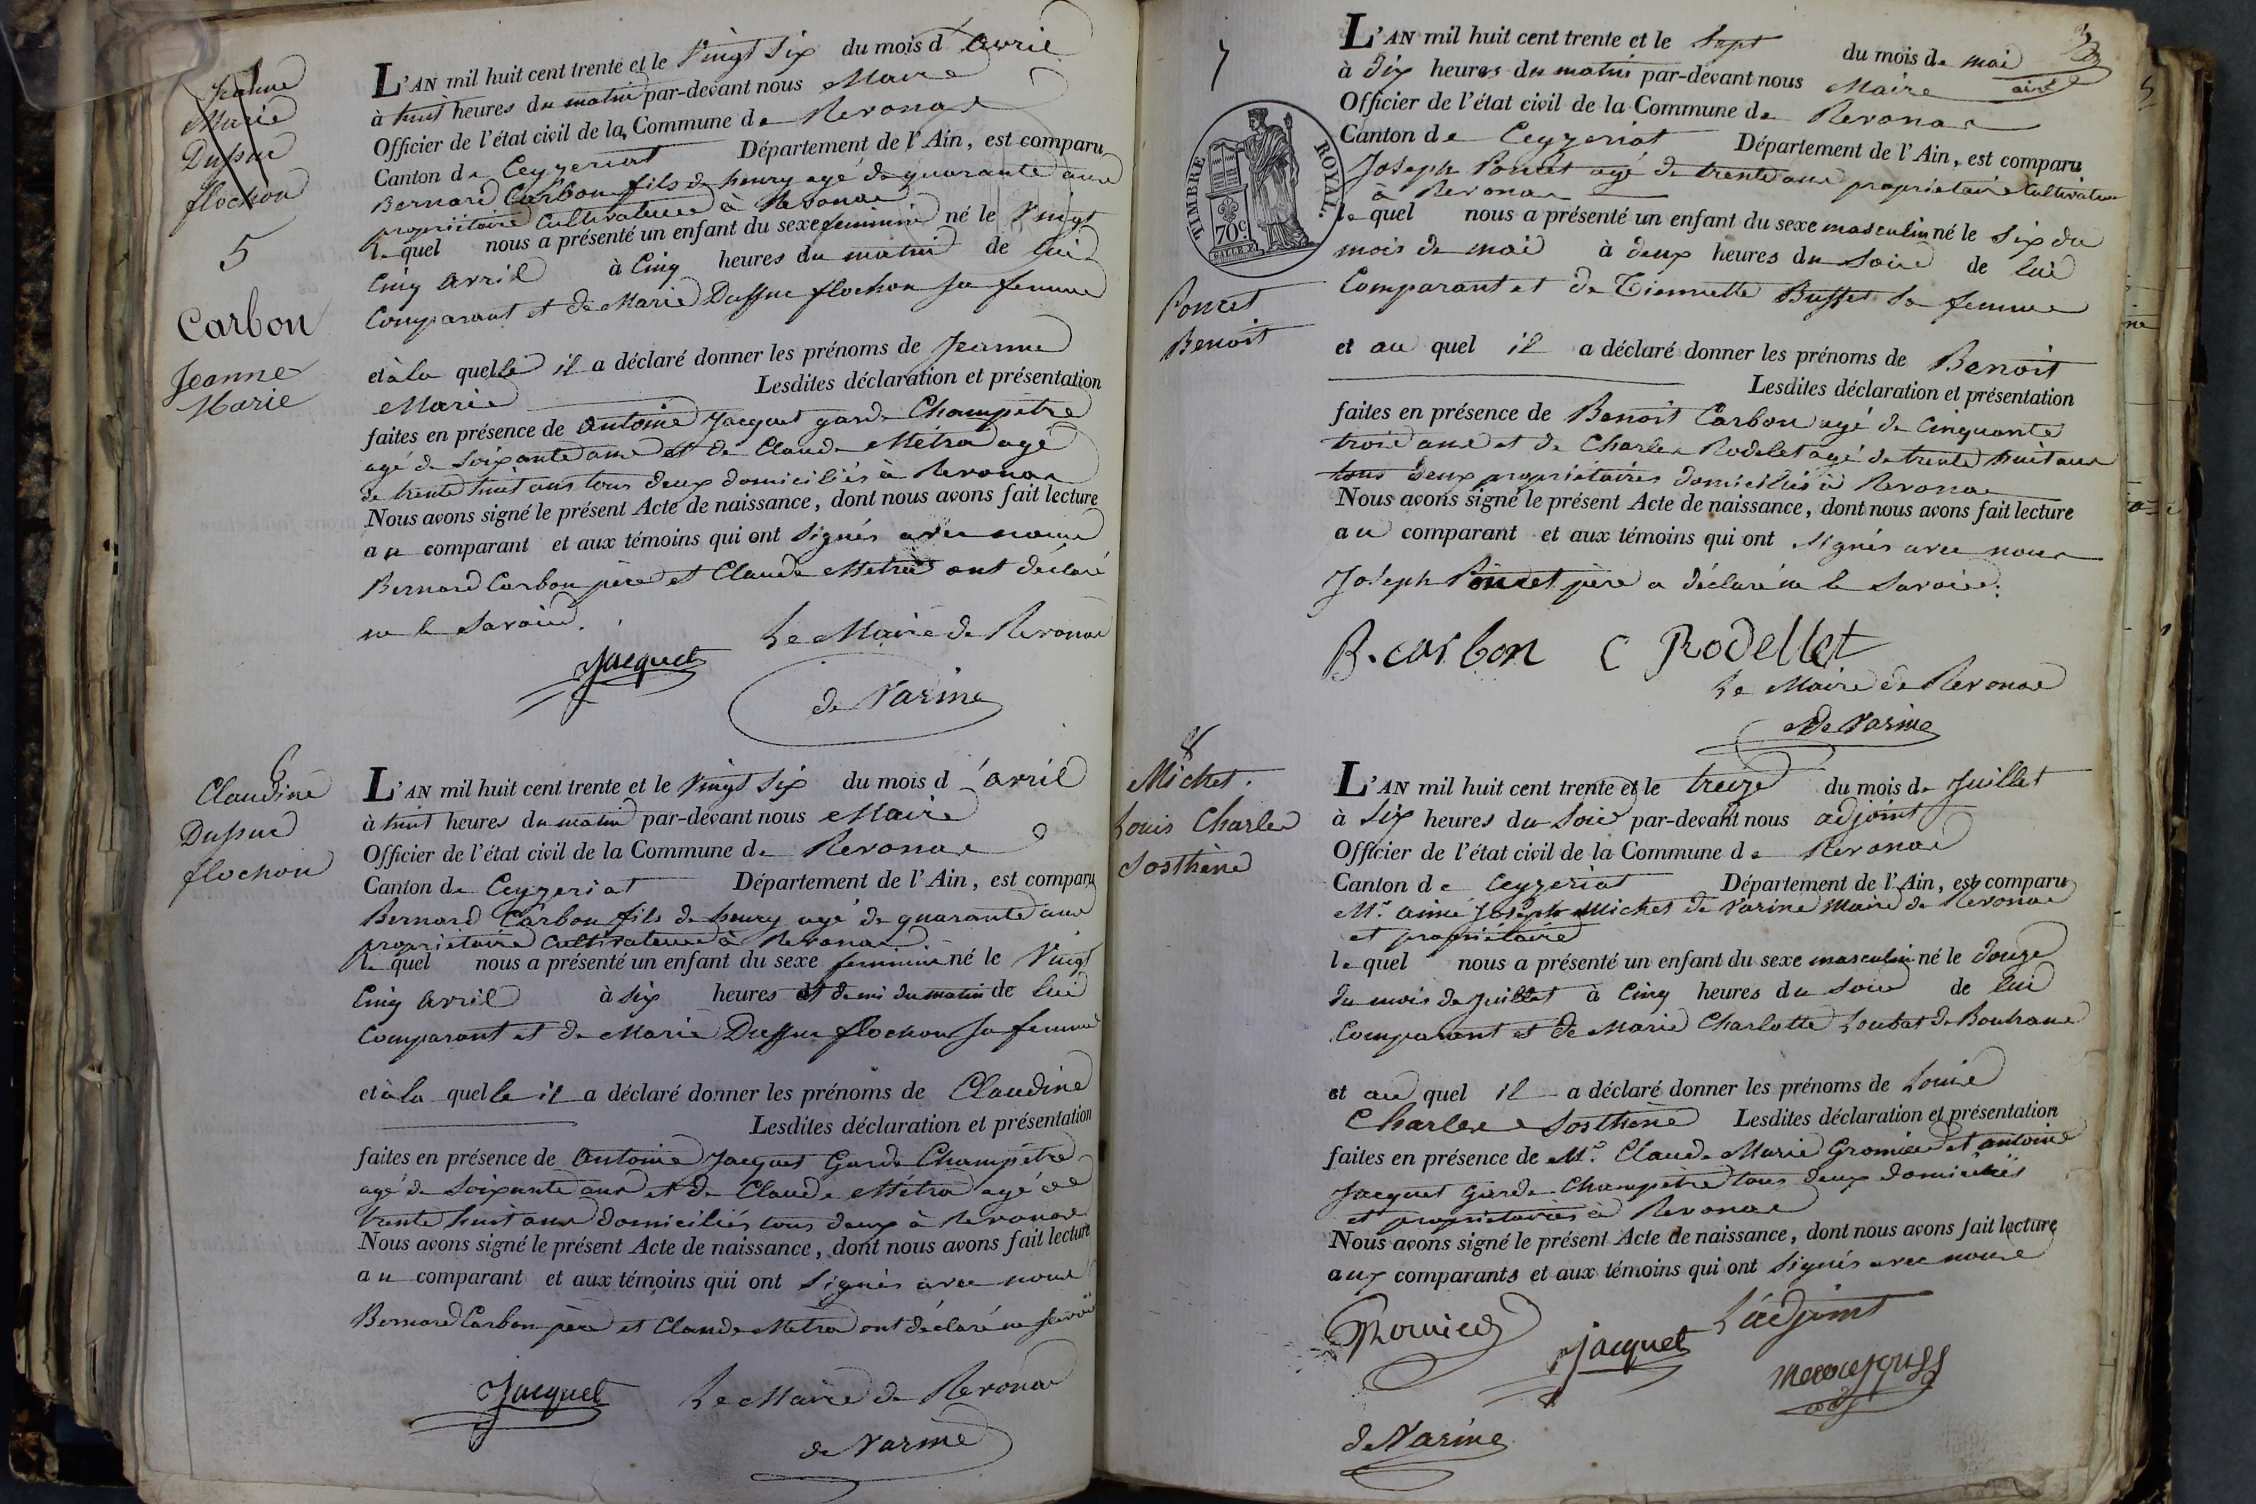 Jeanne
Marie
Dussuc
flochon
5
Carbon
Jeanne
Marie
L'AN mil huit cent trente et le Vingt Six du mois d'avril
à huit heures du matin par-devant nous Maire
Officier de l'état civil de la Commune de Revonas
Canton de Ceyzeriat Département de l'Ain, est comparu
Bernard Carbon fils de henry agé de quarante ans
propriétaire Cultivateur à Revonas
le quel nous a présenté un enfant du sexe feminin né le Vingt
Cinq avril à Cinq heures du matin de lui
Comparant et de Marie Dussuc flochon sa femme
et à la quelle il a déclaré donner les prénoms de Jeanne
Marie Lesdites déclaration et présentation
faites en présence de antoine Jacquet garde Champêtre
agé de soixante ans et de Claude Métra agé
de trente huit ans tous deux domiciliés à Revonas
Nous avons signé le présent Acte de naissance, dont nous avons fait lecture
au comparant et aux témoins qui ont signés avec nous
Bernard Carbon père et Claude Métra ont déclaré
ne le savoir.
Le Maire de Revonas
Jacquet
de Varine
6
Claudine
Dussuc
flochon
L'AN mil huit cent trente et le Vingt Six du mois d'avril
à huit heures du matin par-devant nous Maire
Officier de l'état civil de la Commune de Revonas
Canton de Ceyzeriat Département de l'Ain, est comparu
Bernard Carbon fils de henry agé de quarante ans
propriétaire Cultivateur à Revonas
le quel nous a présenté un enfant du sexe feminin né le Vingt
Cinq avril à six heures et demi du matin de lui
Comparant et de Marie Dussuc flochon sa femme
et à la quelle il a déclaré donner les prénoms de Claudine
Lesdites déclaration et présentation
faites en présence de antoine Jacquet Garde Champêtre
agé de soixante ans et de Claude Métra agé de
trente huit ans domiciliés tous deux à Revonas
Nous avons signé le présent Acte de naissance, dont nous avons fait lecture
au comparant et aux témoins qui ont signés avec nous
Bernard Carbon père et Claude Métra ont déclaré ne savoir
Jacquet Le Maire de Revonas
de Varine
7
TIMBRE ROYAL.
70c
Poncet
Benoit
L'AN mil huit cent trente et le Sept du mois de mai
à dix heures du matin par-devant nous Maire
Officier de l'état civil de la Commune de Revonas
Canton de Ceyzeriat Département de l'Ain, est comparu
Joseph Poncet agé de trente ans propriétaire Cultivateur
à Revonas
le quel nous a présenté un enfant du sexe masculin né le six du
mois de mai à deux heures du soir de lui
Comparant et de Tiennette Buffet sa femme
et au quel il a déclaré donner les prénoms de Benoit
Lesdites déclaration et présentation
faites en présence de Benoit Carbon agé de cinquante
trois ans et de Charles Rodelet agé de trente huit ans
tous deux propriétaires domiciliés à Revonas
Nous avons signé le présent Acte de naissance, dont nous avons fait lecture
au comparant et aux témoins qui ont signés avec nous
Joseph Poncet père a déclaré ne le savoir.
B. carbon C Rodellet
Le Maire de Revonas
de Varine
8
Michet.
Louis Charles
Sosthène
L'AN mil huit cent trente et le treize du mois de Juillet
à Six heures du Soir par-devant nous adjoint
Officier de l'état civil de la Commune de Revonas
Canton de Ceyzeriat Département de l'Ain, est comparu
Mr. aimé Joseph Michet de Varine Maire de Revonas
et propriétaire
le quel nous a présenté un enfant du sexe masculin né le douze
du mois de Juillet à Cinq heures du Soir de lui
Comparant et de Marie Charlotte Loubat de Bouhans
et au quel il a déclaré donner les prénoms de Louis
Charles Sosthène Lesdites déclaration et présentation
faites en présence de Mr. Claude Marie Gromier et antoine
Jacquet Garde Champêtre tous deux domiciliés
et propriétaires à Revonas
Nous avons signé le présent Acte de naissance, dont nous avons fait lecture
aux comparants et aux témoins qui ont signés avec nous
Gromier Jacquet L'adjoint
de Varine